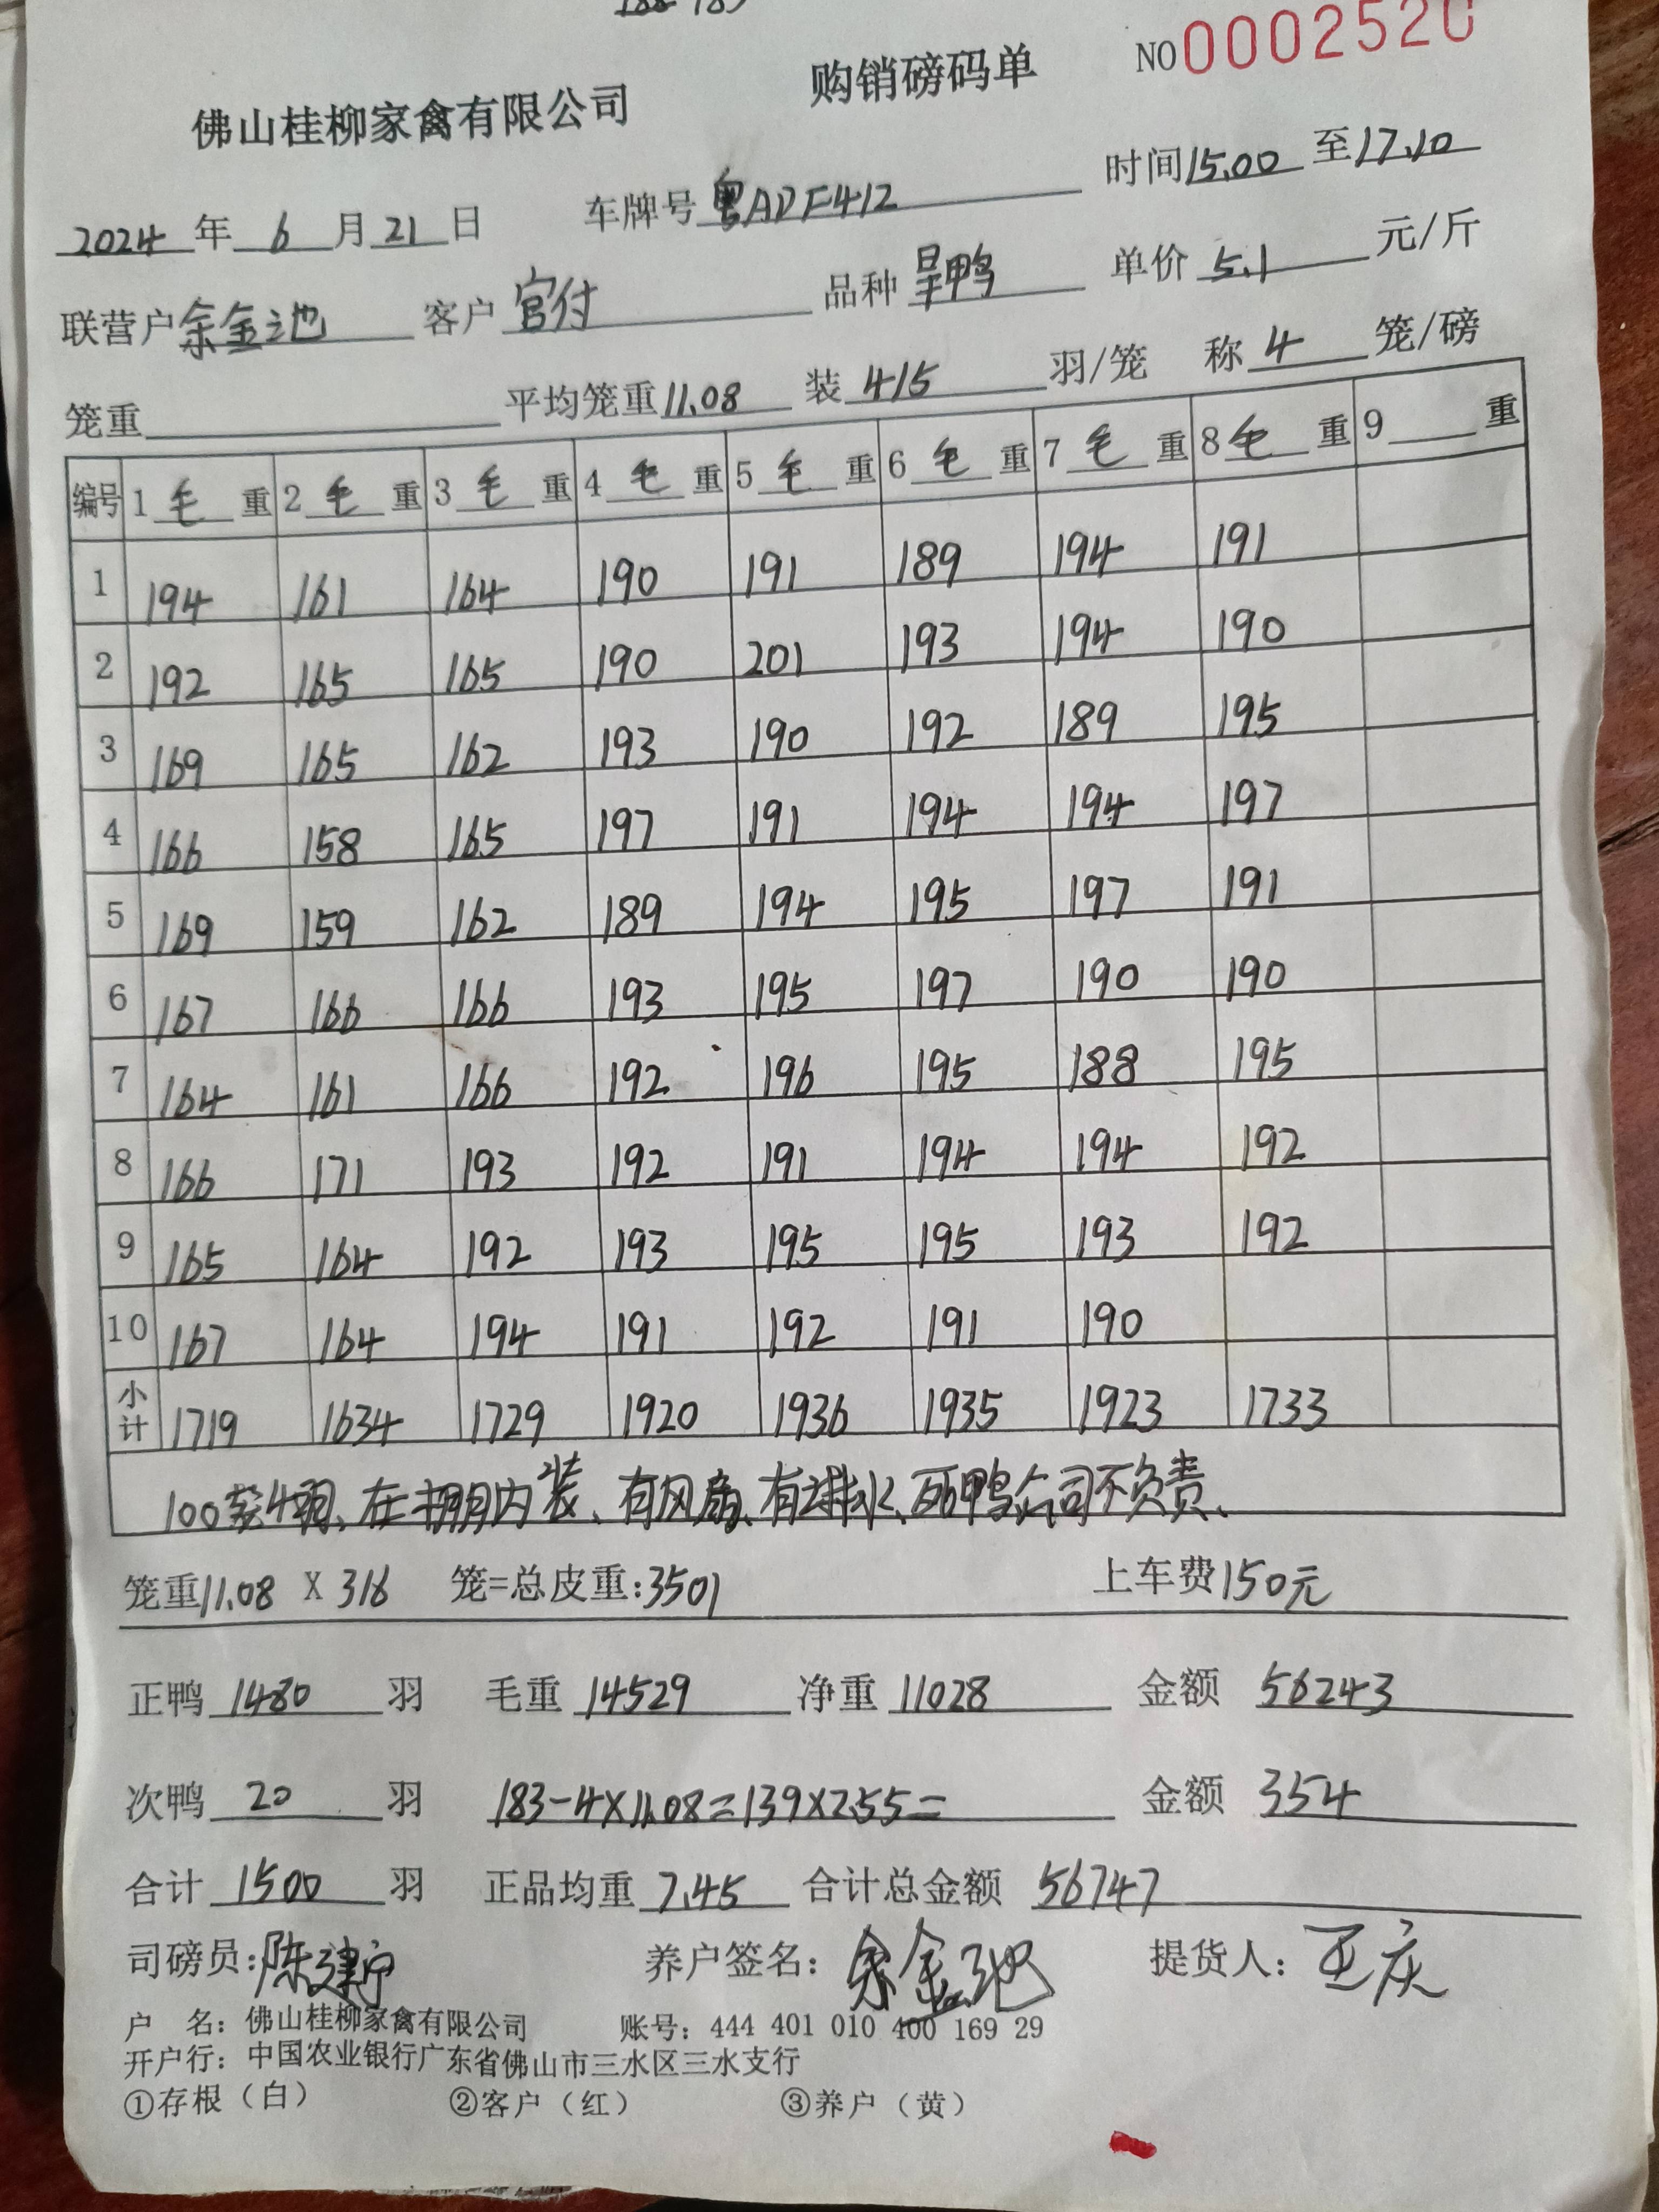 购销磅码单 NO 0002520
佛山桂柳家禽有限公司
2024年6月21日 车牌号粤ADF412 时间15.00至17.10
联营户余金池 客户官付 品种 单价5.1元/斤
笼重 平均笼重11.08 装4/5羽/笼 称4笼/磅
编号 1毛重 2毛重 3毛重 4毛重 5毛重 6毛重 7毛重 8毛重 9重
1 194 161 164 190 191 189 194 191
2 192 165 165 190 201 193 194 190
3 169 165 162 193 190 192 189 195
4 166 158 165 197 191 194 194 197
5 169 159 162 189 194 195 197 191
6 167 166 166 193 195 197 190 190
7 164 161 166 192 196 195 188 195
8 166 171 193 192 191 194 194 192
9 165 164 192 193 195 195 193 192
10 167 164 194 191 192 191 190
小计 1719 1634 1729 1920 1936 1935 1923 1733
100装4羽、在棚内装、有风扇、有排水、死鸭公司不负责、
笼重11.08 X 316 笼=总皮重:3501 上车费150元
正鸭1480羽 毛重14529 净重11028 金额56243
次鸭20羽 183-4×11.08=139×2.55= 金额354
合计1500羽 正品均重7.45 合计总金额56747
司磅员:陈建宁 养户签名:余金池 提货人:王庆
户 名:佛山桂柳家禽有限公司 账号:444 401 010 400 169 29
开户行:中国农业银行广东省佛山市三水区三水支行
①存根（白） ②客户（红） ③养户（黄）